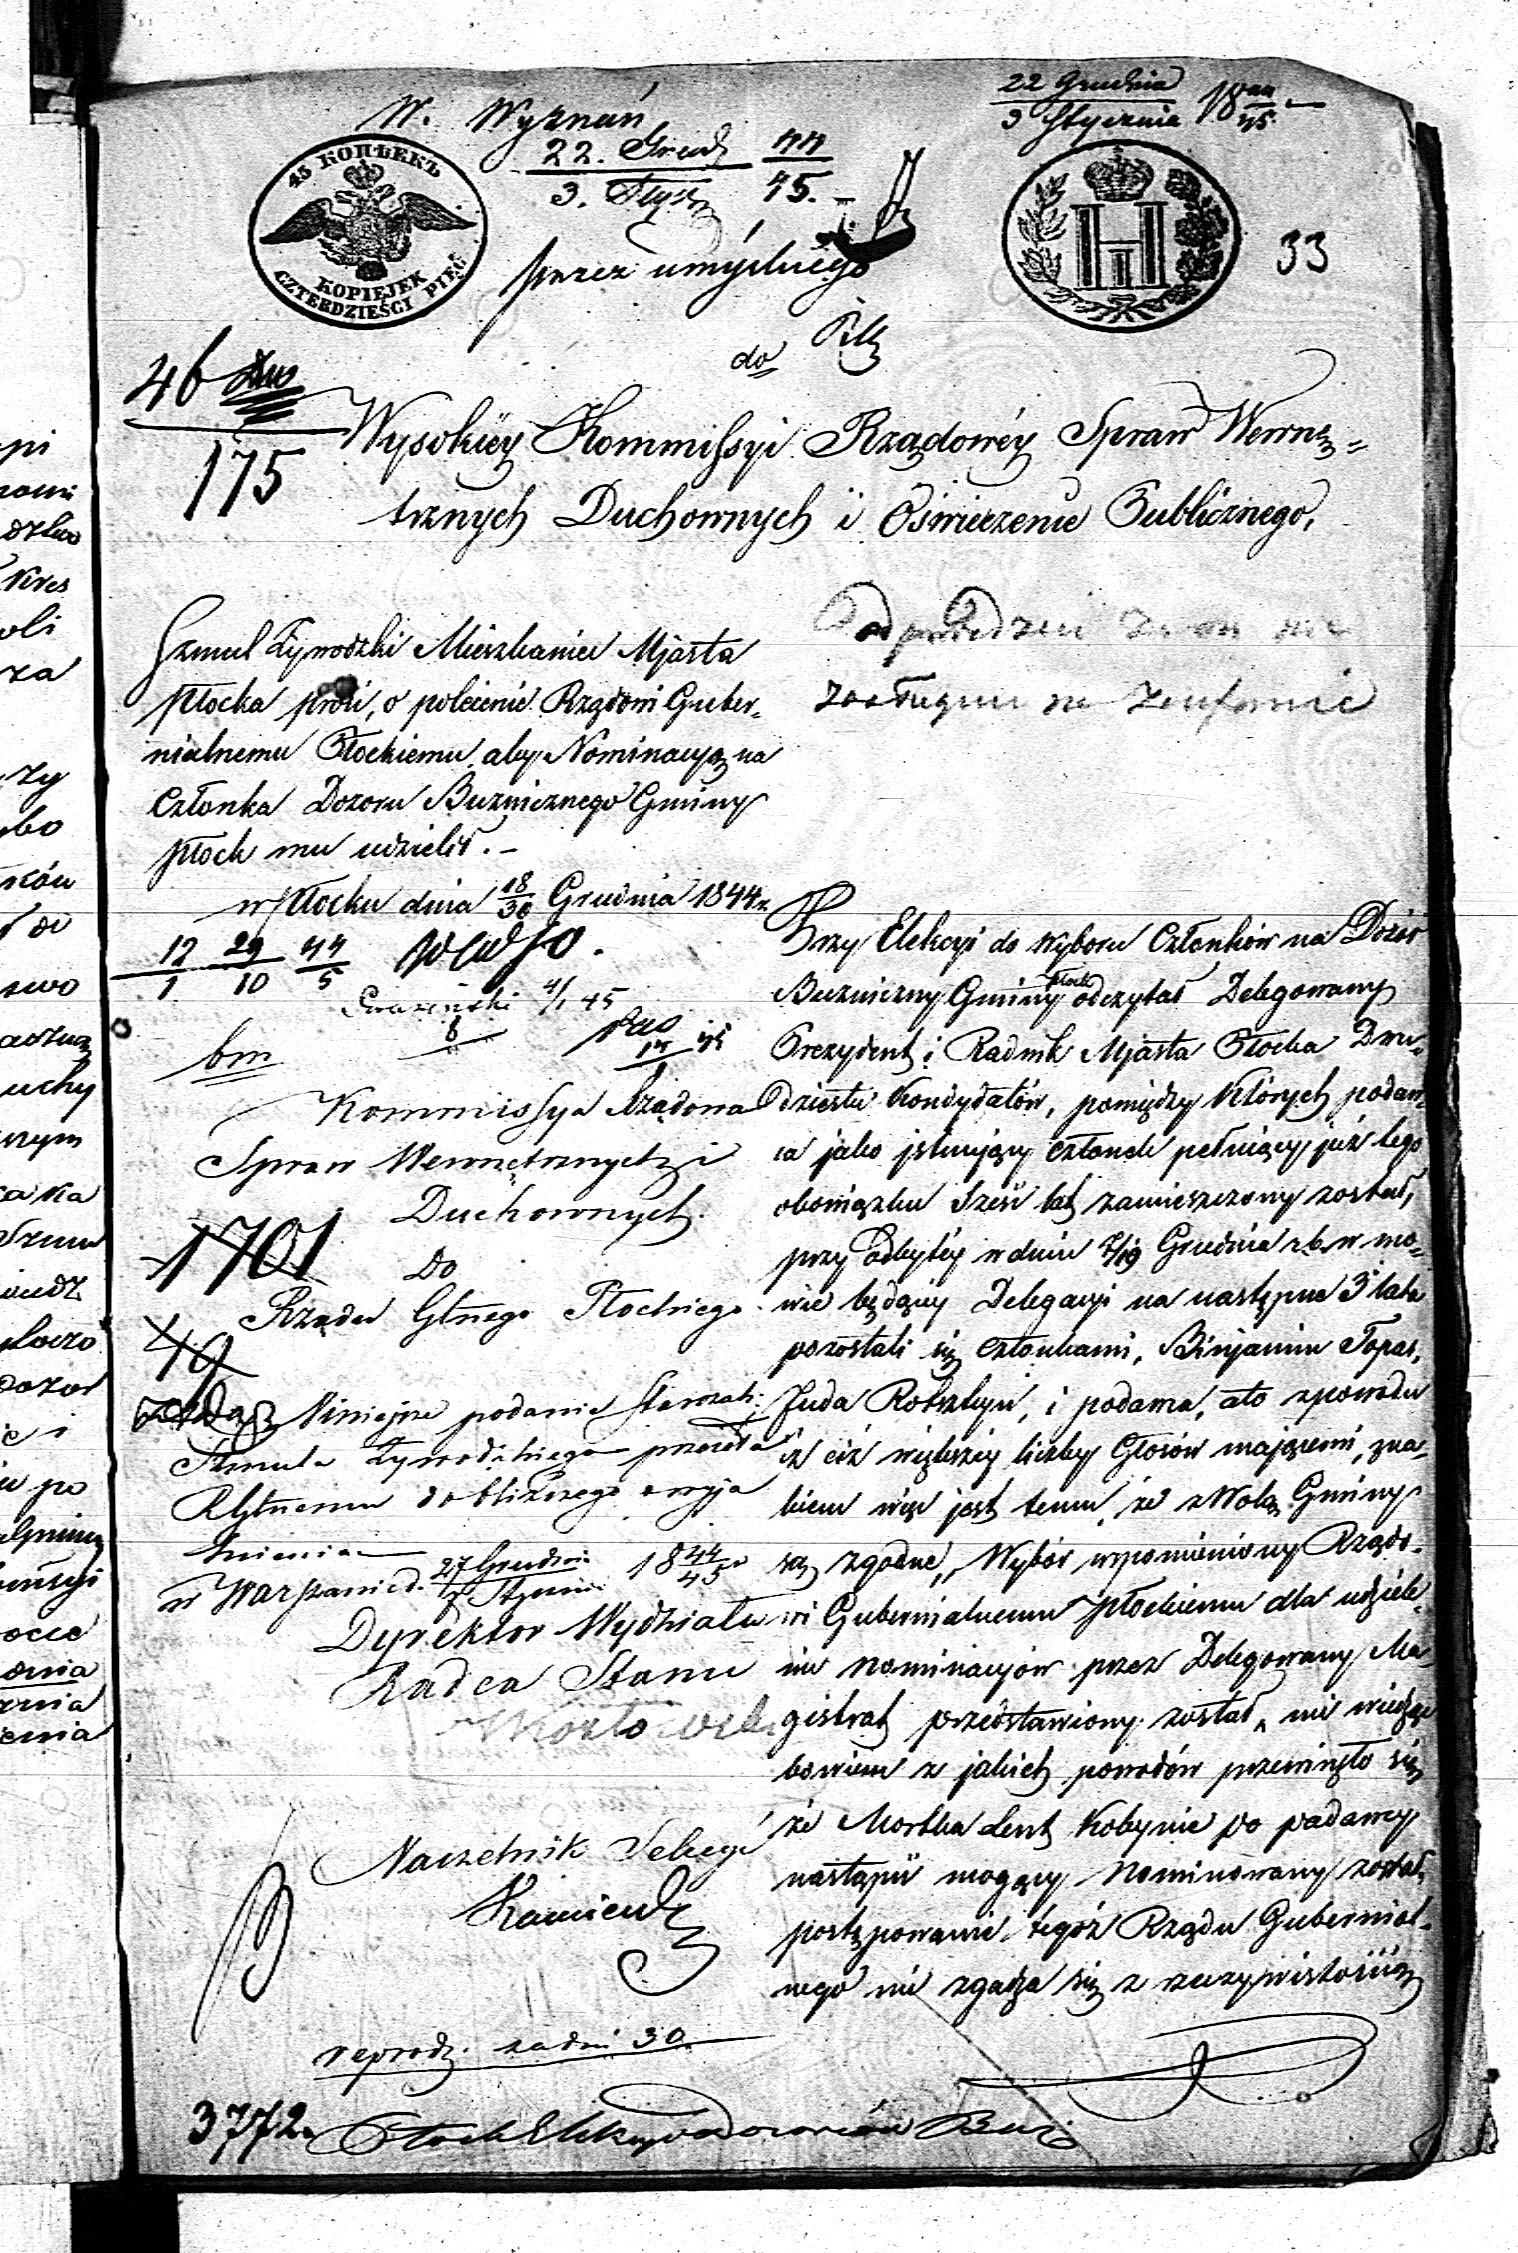 22 Grudnia
3 Stycznia 18 44/45
W. Wyznań
22. Grud 44
3. Stycz 45.
45 КОПѢЕКЪ
KOPIEJEK
CZTERDZIEŚCI PIĘĆ
przez umyślnego
33
do
46
175
Wysokiéy Kommissyi Rządowéy Spraw Wewnę-
trznych Duchownych i Oświecenia Publicznego.
Szmul Żyrodzki Mieszkaniec Mjasta
Płocka prosi, o polecenie Rządowi Guber-
nialnemu Płockiemu aby Nominacyą na
Członka Dozoru Bużnicznego Gminy
Płock mu udzielił. –
w Płocku dnia 18/30 Grudnia 1844 r.
12 29 44
1 10 5
4/1 45
8
bm
Kommissya Rządowa
Spraw Wewnętrznych i
Duchownych.
1701
Do
Rządu Głnego Płockiego
49
Niniejsze podanie Starozak.
Szmula Żyrodzkiego przesyła
Rządowi do bliższego wyja
śnienia
w Warszawie d. 27 Grudnia 18 44
Stycznia 45
Dyrektor Wydziału
Radca Stanu
Naczelnik Sekcyi
reprod. za dni 30.
3772.
Odpowiedzieć że on nie
zasługuie na zaufanie
Przy Elekcyi do wyboru Członków na Dozór
Bużniczny Gminy Płock odczytał Delegowany
Prezydent i Radnik Mjasta Płocka Dwu-
dziestu Kandydatów, pomiędzy których podaw-
ca jako jstniejący członek pełniący już tego
obowiązku Sześć lat zamieszczony został,
przy odbytéy w dniu 7/19 Grudnia r.b. w mo-
wie będącéy Delegacyi na następne 3 lata
pozostali się członkami, Binjamin Topas,
Juda Rotsztejn, i podawca, a to z powodu
iż ciż większéy liczby Głosów mającemi, zna-
kiem więc jest temu, że z Wolą Gminy
są zgodne, Wybór wspomniony Rządo-
wi Gubernialnemu Płockiemu dla udziele-
nia nominacyów przez Delegowany Ma-
gistrat przedstawiony został, nie wiedząc
bowiem z jakich powodów przewinęło się
że Mortka Lent Kobynie po podawcy
nastąpić mogący Nominowany został,
postępowanie tegoż Rządu Gubernial-
nego nie zgadza się z rzeczywistością